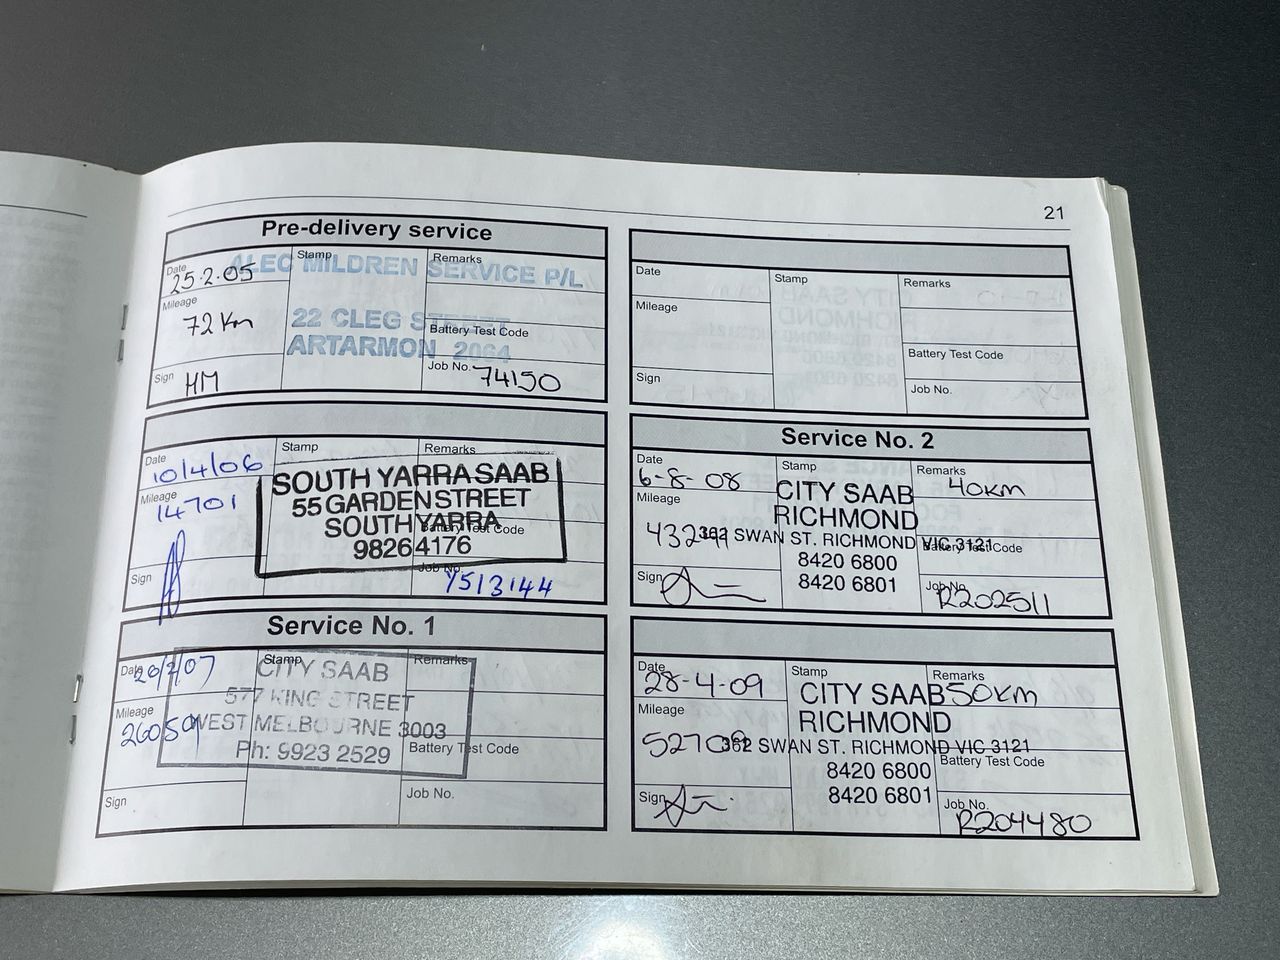 21
Pre-delivery service
Date 25-2-05
Stamp
Remarks
ALEC MILDREN SERVICE P/L
Mileage 72 Km
22 CLEG STREET
Battery Test Code
ARTARMON 2064
Sign HM
Job No. 74150
Date 10/4/06
Stamp
Remarks
SOUTH YARRA SAAB
Mileage 14701
55 GARDEN STREET
SOUTH YARRA
Battery Test Code
9826 4176
Sign
Job No. Y513144
Service No. 1
Date
Stamp
Remarks
CITY SAAB
577 KING STREET
Mileage
WEST MELBOURNE 3003
Battery Test Code
Ph: 9923 2529
Sign
Job No.
Date
Stamp
Remarks
Mileage
Battery Test Code
Sign
Job No.
Service No. 2
Date 6-8-08
Stamp
Remarks 40km
CITY SAAB
RICHMOND
Mileage
362 SWAN ST. RICHMOND VIC 3121
Battery Test Code
8420 6800
8420 6801
Sign
Job No. R202511
Date 28-4-09
Stamp
Remarks 50km
CITY SAAB
RICHMOND
Mileage
362 SWAN ST. RICHMOND VIC 3121
Battery Test Code
8420 6800
8420 6801
Sign
Job No. R204480